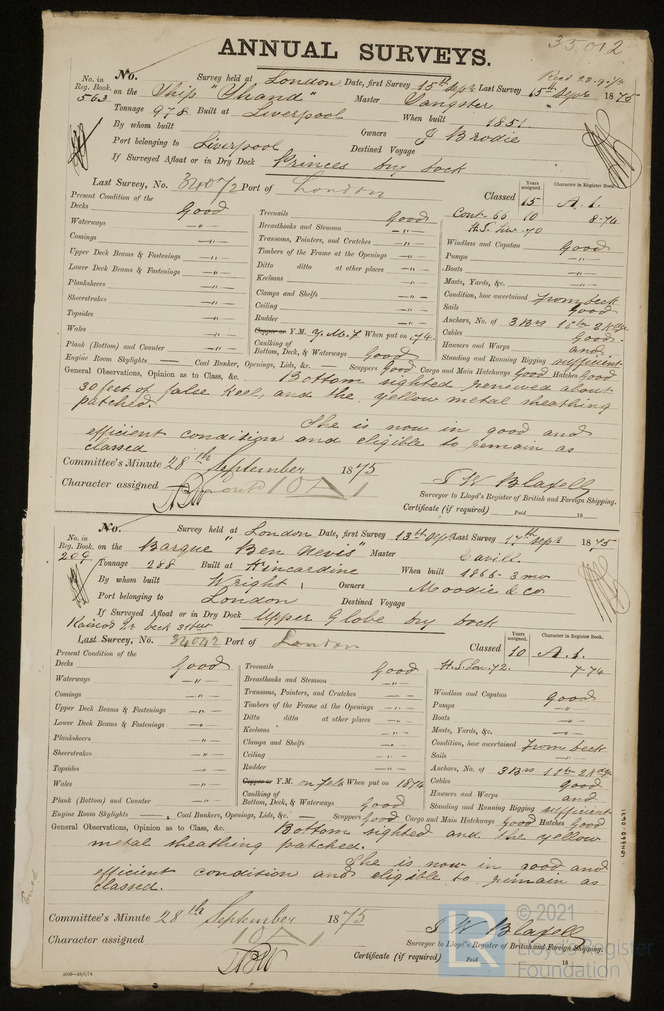 35,012
ANNUAL SURVEYS.
No. Survey held at London Date, first Survey 15th Sept Last Survey 15th Sept 1875
No. in Reg. Book. 563 on the Ship "Dhand" Master Sangster
Tonnage 978 Built at Liverpool When built 1851
By whom built Owners J Brodie
Port belonging to Liverpool Destined Voyage
If Surveyed Afloat or in Dry Dock Princes dry dock
Last Survey, No. 32072 Port of London Classed 15 A.1.
Years assigned. Character in Register Book.
Cont- 66 10 8-74
Present Condition of the
Decks Good Treenails Good
Waterways " Breasthooks and Stemson " Windlass and Capstan Good
Comings " Transoms, Pointers, and Crutches " Pumps "
Upper Deck Beams & Fastenings " Timbers of the Frame at the Openings " Boats "
Lower Deck Beams & Fastenings " Ditto ditto at other places " Masts, Yards, &c. "
Planksheers " Keelsons " Condition, how ascertained from deck
Sheerstrakes " Clamps and Shelfs " Sails Good
Topsides " Ceiling " Anchors, No. of 3 Brs 1 Stm 2 Kdge
Wales " Rudder " Cables Good
Copper or Y.M. Y.M.f When put on 74 Hawsers and Warps and
Plank (Bottom) and Counter " Caulking of Bottom, Deck, & Waterways Good Standing and Running Rigging sufficient
Engine Room Skylights — Coal Bunker, Openings, Lids, &c. — Scuppers Good Cargo and Main Hatchways Good Hatches Good
General Observations, Opinion as to Class, &c. Bottom sighted renewed about
30 feet of false keel, and the yellow metal sheathing
patched.
She is now in good and
efficient condition and eligible to remain as
classed
Committee's Minute 28th September 1875
Character assigned
J W Blaxell
Surveyor to Lloyd's Register of British and Foreign Shipping.
Certificate (if required) Paid 18
No. Survey held at London Date, first Survey 13th Sept Last Survey 17th Sept 1875
No. in Reg. Book. 289 on the Barque "Ben Nevis" Master Cavill
Tonnage 288 Built at Kincardine When built 1865-3 mo
By whom built Wright Owners Moodie & Co
Port belonging to London Destined Voyage
If Surveyed Afloat or in Dry Dock Upper Globe dry dock
Last Survey, No. 34042 Port of London Classed 10 A.1.
Years assigned. Character in Register Book.
7-74
Present Condition of the
Decks Good Treenails Good
Waterways " Breasthooks and Stemson " Windlass and Capstan Good
Comings " Transoms, Pointers, and Crutches " Pumps "
Upper Deck Beams & Fastenings " Timbers of the Frame at the Openings " Boats "
Lower Deck Beams & Fastenings " Ditto ditto at other places " Masts, Yards, &c. "
Planksheers " Keelsons " Condition, how ascertained from deck
Sheerstrakes " Clamps and Shelfs " Sails "
Topsides " Ceiling " Anchors, No. of 3 Brs 1 Stm 2 Kdge
Wales " Rudder " Cables Good
Copper or Y.M. on felt When put on 1874 Hawsers and Warps and
Plank (Bottom) and Counter " Caulking of Bottom, Deck, & Waterways Good Standing and Running Rigging sufficient
Engine Room Skylights — Coal Bunkers, Openings, Lids, &c. — Scuppers Good Cargo and Main Hatchways Good Hatches Good
General Observations, Opinion as to Class, &c. Bottom sighted and the yellow
metal sheathing patched.
She is now in good and
efficient condition and eligible to remain as
classed.
Committee's Minute 28th September 1875
Character assigned
J W Blaxell
Surveyor to Lloyd's Register of British and Foreign Shipping.
Certificate (if required) Paid 18
© 2021
Lloyd's Register
Foundation
LR